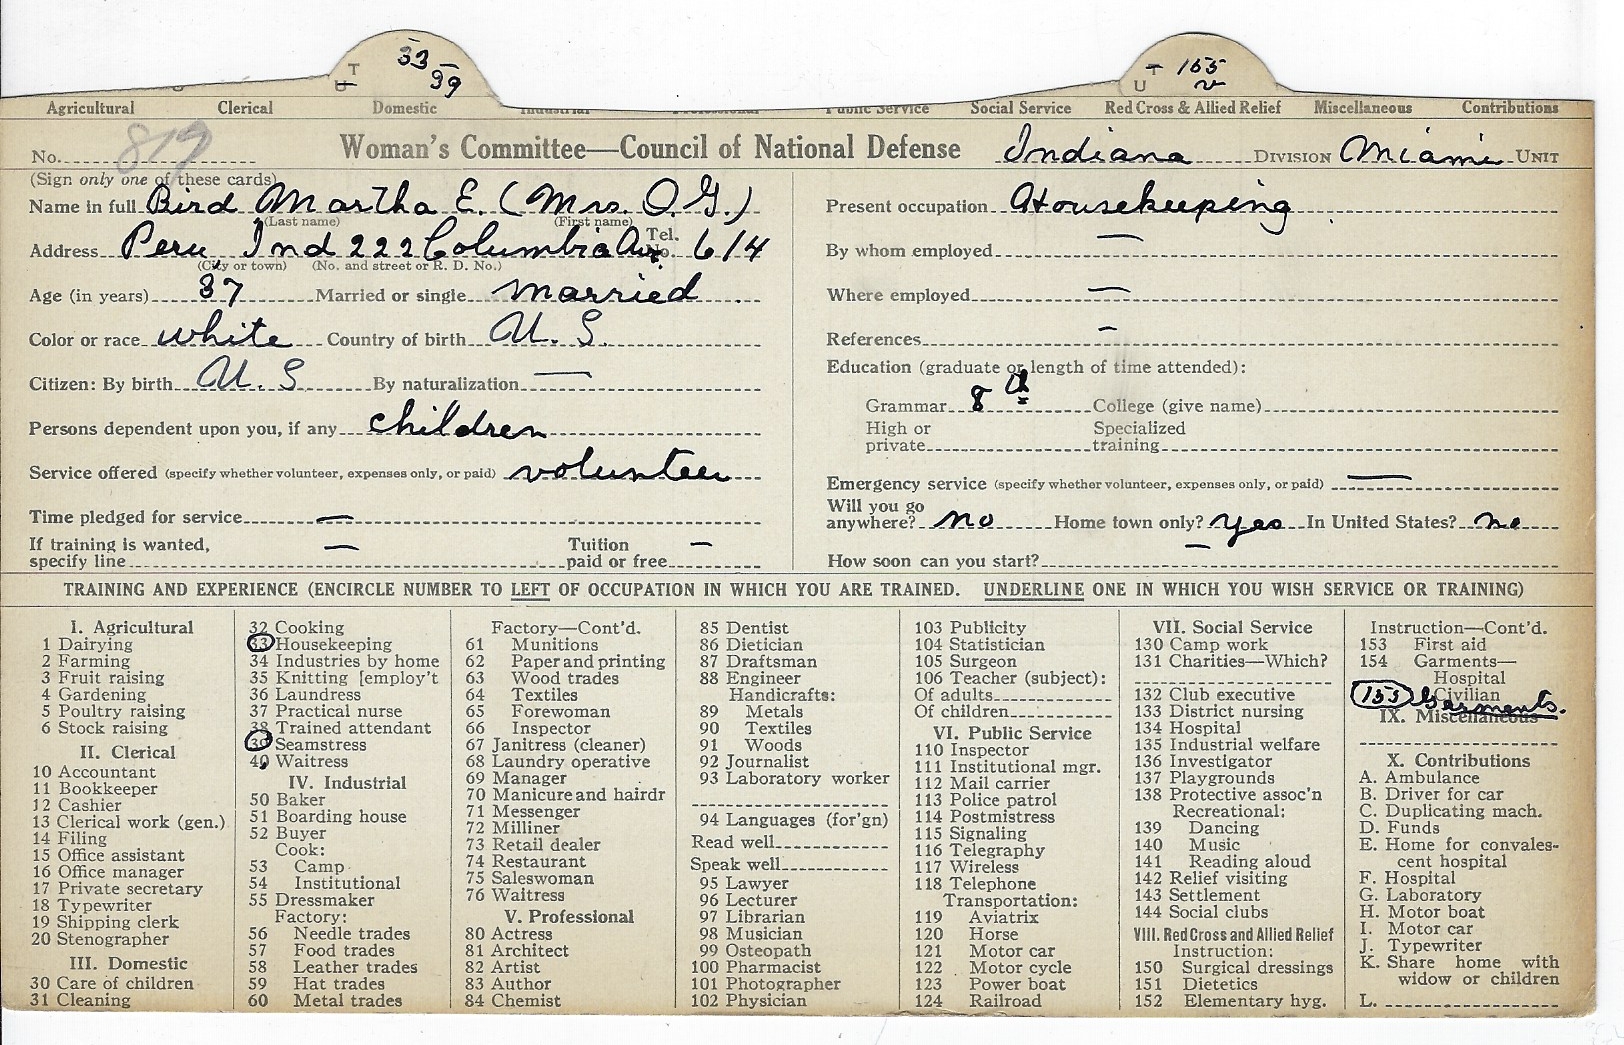 T 33 39
U
T 155
U v
Agricultural Clerical Domestic Industrial Professional Public Service Social Service Red Cross & Allied Relief Miscellaneous Contributions
No. 819 Woman's Committee—Council of National Defense Indiana DIVISION Miami UNIT
(Sign only one of these cards)
Name in full Bird Martha E. (Mrs. O. G.)
(Last name) (First name)
Address Peru, Ind 222 Columbia Av. Tel. No. 614
(City or town) (No. and street or R. D. No.)
Age (in years) 37 Married or single married
Color or race white Country of birth U. S.
Citizen: By birth U. S By naturalization —
Persons dependent upon you, if any children
Service offered (specify whether volunteer, expenses only, or paid) volunteer
Time pledged for service —
If training is wanted, specify line — Tuition paid or free —
Present occupation Housekeeping
By whom employed —
Where employed —
References —
Education (graduate or length of time attended):
Grammar 8th College (give name)
High or private Specialized training
Emergency service (specify whether volunteer, expenses only, or paid) —
Will you go anywhere? no Home town only? yes In United States? no
How soon can you start? —
TRAINING AND EXPERIENCE (ENCIRCLE NUMBER TO LEFT OF OCCUPATION IN WHICH YOU ARE TRAINED. UNDERLINE ONE IN WHICH YOU WISH SERVICE OR TRAINING)
I. Agricultural
1 Dairying
2 Farming
3 Fruit raising
4 Gardening
5 Poultry raising
6 Stock raising
II. Clerical
10 Accountant
11 Bookkeeper
12 Cashier
13 Clerical work (gen.)
14 Filing
15 Office assistant
16 Office manager
17 Private secretary
18 Typewriter
19 Shipping clerk
20 Stenographer
III. Domestic
30 Care of children
31 Cleaning
32 Cooking
33 Housekeeping
34 Industries by home
35 Knitting [employ't
36 Laundress
37 Practical nurse
38 Trained attendant
39 Seamstress
40 Waitress
IV. Industrial
50 Baker
51 Boarding house
52 Buyer
Cook:
53 Camp
54 Institutional
55 Dressmaker
Factory:
56 Needle trades
57 Food trades
58 Leather trades
59 Hat trades
60 Metal trades
Factory—Cont'd.
61 Munitions
62 Paper and printing
63 Wood trades
64 Textiles
65 Forewoman
66 Inspector
67 Janitress (cleaner)
68 Laundry operative
69 Manager
70 Manicure and hairdr
71 Messenger
72 Milliner
73 Retail dealer
74 Restaurant
75 Saleswoman
76 Waitress
V. Professional
80 Actress
81 Architect
82 Artist
83 Author
84 Chemist
85 Dentist
86 Dietician
87 Draftsman
88 Engineer
Handicrafts:
89 Metals
90 Textiles
91 Woods
92 Journalist
93 Laboratory worker
94 Languages (for'gn)
Read well
Speak well
95 Lawyer
96 Lecturer
97 Librarian
98 Musician
99 Osteopath
100 Pharmacist
101 Photographer
102 Physician
103 Publicity
104 Statistician
105 Surgeon
106 Teacher (subject):
Of adults
Of children
VI. Public Service
110 Inspector
111 Institutional mgr.
112 Mail carrier
113 Police patrol
114 Postmistress
115 Signaling
116 Telegraphy
117 Wireless
118 Telephone
Transportation:
119 Aviatrix
120 Horse
121 Motor car
122 Motor cycle
123 Power boat
124 Railroad
VII. Social Service
130 Camp work
131 Charities—Which?
132 Club executive
133 District nursing
134 Hospital
135 Industrial welfare
136 Investigator
137 Playgrounds
138 Protective assoc'n
Recreational:
139 Dancing
140 Music
141 Reading aloud
142 Relief visiting
143 Settlement
144 Social clubs
VIII. Red Cross and Allied Relief
Instruction:
150 Surgical dressings
151 Dietetics
152 Elementary hyg.
Instruction—Cont'd.
153 First aid
154 Garments—
Hospital
Civilian
155 Garments.
IX. Miscellaneous
X. Contributions
A. Ambulance
B. Driver for car
C. Duplicating mach.
D. Funds
E. Home for convales-
cent hospital
F. Hospital
G. Laboratory
H. Motor boat
I. Motor car
J. Typewriter
K. Share home with
widow or children
L.